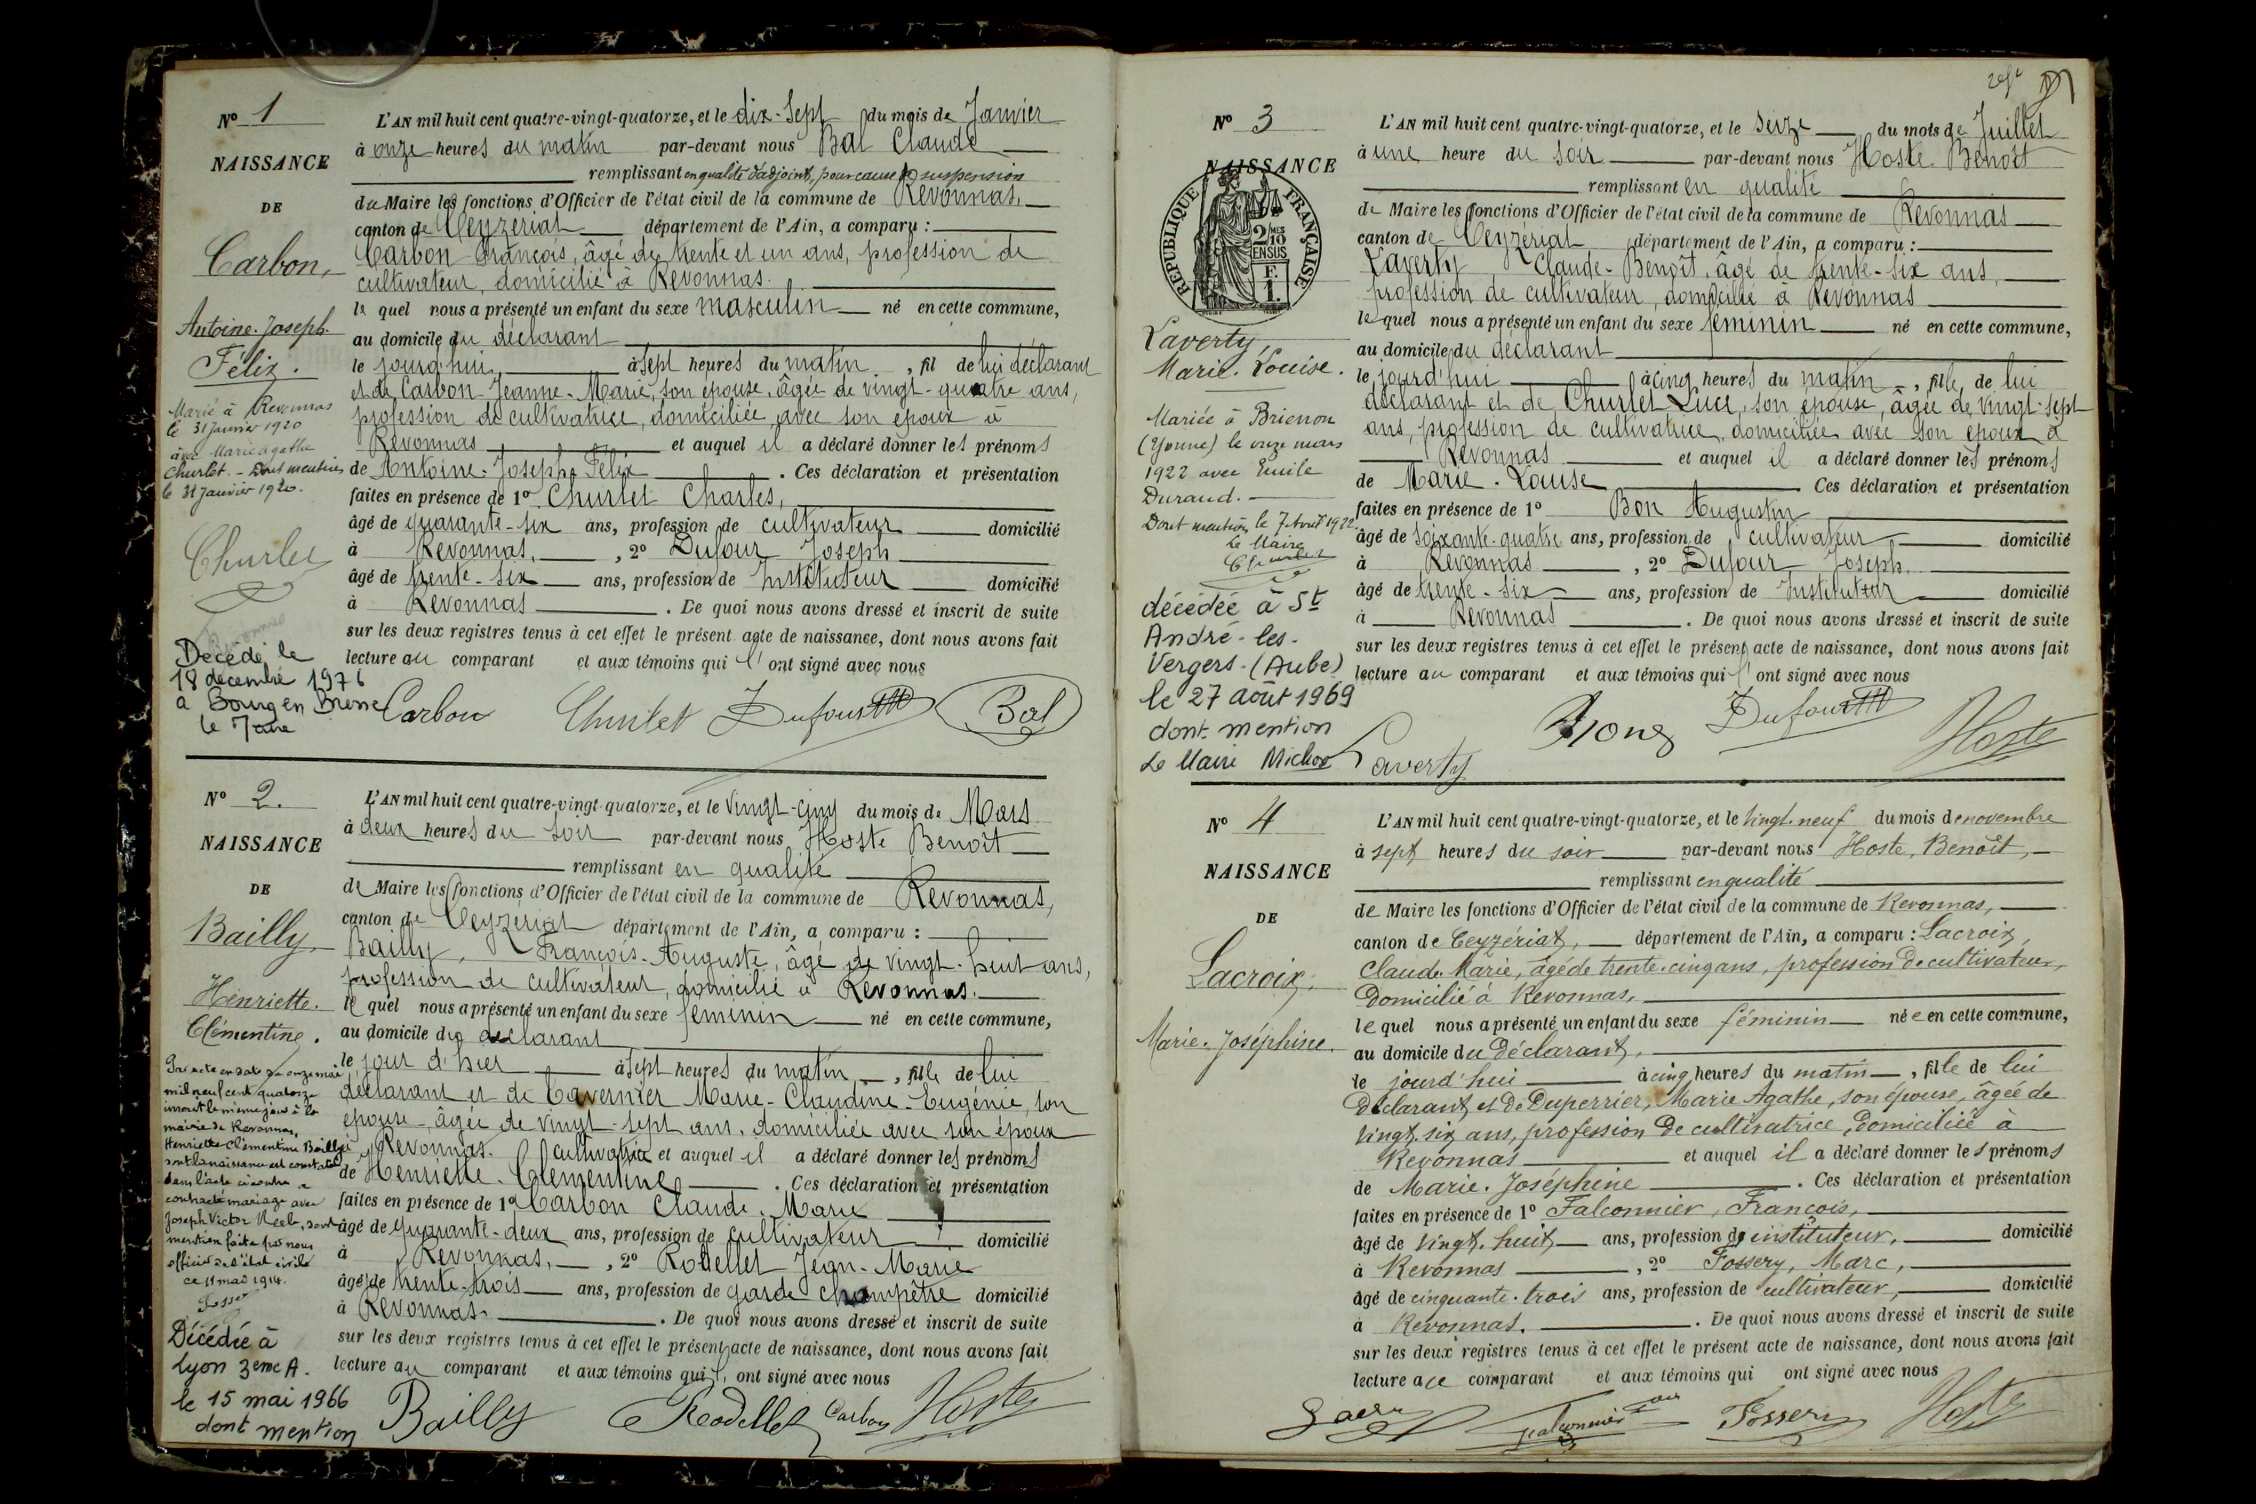 Nº 1
NAISSANCE
DE
Carbon,
Antoine-Joseph-
Félix.
Marié à Revonnas
le 31 Janvier 1920
avec Marie Agathe
Churlet. - Dont mention
le 31 Janvier 1920.
Churlet
Décédé le
18 décembre 1976
à Bourg en Bresse
le Maire
L'AN mil huit cent quatre-vingt-quatorze, et le dix-sept du mois de Janvier
à onze heures du matin par-devant nous Bal Claude
remplissant en qualité d'adjoint, pour cause de suspension
du Maire les fonctions d'Officier de l'état civil de la commune de Revonnas,
canton de Ceyzériat département de l'Ain, a comparu :
Carbon François, âgé de trente et un ans, profession de
cultivateur, domicilié à Revonnas.
le quel nous a présenté un enfant du sexe masculin né en cette commune,
au domicile du déclarant
le jourd'hui à sept heures du matin, fil de lui déclarant
et de Carbon Jeanne-Marie, son épouse, âgée de vingt-quatre ans,
profession de cultivatrice, domiciliée avec son époux à
Revonnas et auquel il a déclaré donner les prénoms
de Antoine-Joseph-Félix. Ces déclaration et présentation
faites en présence de 1º Churlet Charles,
âgé de quarante-six ans, profession de cultivateur domicilié
à Revonnas, , 2º Dufour Joseph
âgé de trente-six ans, profession de Instituteur domicilié
à Revonnas. De quoi nous avons dressé et inscrit de suite
sur les deux registres tenus à cet effet le présent acte de naissance, dont nous avons fait
lecture au comparant et aux témoins qui l' ont signé avec nous
Carbon Churlet Dufour Bal
Nº 2.
NAISSANCE
DE
Bailly,
Henriette-
Clémentine.
Par acte en date du onze mai
mil neuf cent quatorze
inscrit le même jour à la
mairie de Revonnas,
Henriette Clémentine Bailly
dont la naissance est constatée
dans l'acte ci-contre a
contracté mariage avec
Joseph Victor Reeb, dont
mention faite par nous
officier de l'état civil
ce 11 mai 1914.
Fossery
Décédée à
Lyon 3eme A.
le 15 mai 1966
dont mention
L'AN mil huit cent quatre-vingt-quatorze, et le vingt-cinq du mois de Mars
à deux heures du soir par-devant nous Hoste Benoît
remplissant en qualité
de Maire les fonctions d'Officier de l'état civil de la commune de Revonnas,
canton de Ceyzériat département de l'Ain, a comparu :
Bailly, François-Auguste, âgé de vingt-huit ans,
profession de cultivateur, domicilié à Revonnas.
le quel nous a présenté un enfant du sexe féminin né en cette commune,
au domicile du déclarant
le jour d'hier à sept heures du matin, fille de lui
déclarant et de Cavernier Marie-Claudine-Eugénie, son
épouse, âgée de vingt-sept ans, domiciliée avec son époux
à Revonnas. cultivatrice et auquel il a déclaré donner les prénoms
de Henriette-Clémentine. Ces déclaration et présentation
faites en présence de 1º Carbon Claude-Marie
âgé de quarante-deux ans, profession de cultivateur domicilié
à Revonnas, , 2º Rodellet Jean-Marie
âgé de trente-trois ans, profession de garde champêtre domicilié
à Revonnas. De quoi nous avons dressé et inscrit de suite
sur les deux registres tenus à cet effet le présent acte de naissance, dont nous avons fait
lecture au comparant et aux témoins qui l' ont signé avec nous
Bailly Rodellet Carbon Hoste
Nº 3
NAISSANCE
REPUBLIQUE FRANÇAISE
2/10 MES
EN SUS
F.
1.
Laverty,
Marie-Louise.
Mariée à Brienon
(Yonne) le onze mars
1922 avec Emile
Durand.
Dont mention le 7 Avril 1922
Le Maire
Churlet
décédée à St
André-les-
Vergers-(Aube)
le 27 août 1969
dont mention
Le Maire Michon
L'AN mil huit cent quatre-vingt-quatorze, et le seize du mois de Juillet
à une heure du soir par-devant nous Hoste Benoît
remplissant en qualité
de Maire les fonctions d'Officier de l'état civil de la commune de Revonnas
canton de Ceyzériat département de l'Ain, a comparu :
Laverty Claude-Benoît, âgé de trente-six ans,
profession de cultivateur, domicilié à Revonnas
le quel nous a présenté un enfant du sexe féminin né en cette commune,
au domicile du déclarant
le jourd'hui à cinq heures du matin, fille de lui
déclarant et de Churlet Luce, son épouse, âgée de vingt-sept
ans, profession de cultivatrice, domiciliée avec son époux à
Revonnas et auquel il a déclaré donner les prénoms
de Marie-Louise Ces déclaration et présentation
faites en présence de 1º Bon Augustin
âgé de soixante-quatre ans, profession de cultivateur domicilié
à Revonnas, 2º Dufour Joseph
âgé de trente-six ans, profession de Instituteur domicilié
à Revonnas. De quoi nous avons dressé et inscrit de suite
sur les deux registres tenus à cet effet le présent acte de naissance, dont nous avons fait
lecture au comparant et aux témoins qui l' ont signé avec nous
Laverty Dufour Hoste
Nº 4
NAISSANCE
DE
Lacroix,
Marie-Joséphine.
L'AN mil huit cent quatre-vingt-quatorze, et le vingt-neuf du mois de novembre
à sept heures du soir par-devant nous Hoste, Benoît,
remplissant en qualité
de Maire les fonctions d'Officier de l'état civil de la commune de Revonnas,
canton de Ceyzériat, département de l'Ain, a comparu : Lacroix
Claude-Marie, âgé de trente-cinq ans, profession de cultivateur,
domicilié à Revonnas,
le quel nous a présenté un enfant du sexe féminin née en cette commune,
au domicile du déclarant,
le jourd'hui à cinq heures du matin, fille de lui
déclarant et de Duperrier, Marie Agathe, son épouse, âgée de
vingt-six ans, profession de cultivatrice, domiciliée à
Revonnas et auquel il a déclaré donner les prénoms
de Marie-Joséphine. Ces déclaration et présentation
faites en présence de 1º Falconnier, François,
âgé de vingt-huit ans, profession de instituteur, domicilié
à Revonnas, 2º Fossery, Marc,
âgé de cinquante-trois ans, profession de cultivateur, domicilié
à Revonnas. De quoi nous avons dressé et inscrit de suite
sur les deux registres tenus à cet effet le présent acte de naissance, dont nous avons fait
lecture au comparant et aux témoins qui ont signé avec nous
Falconnier Fossery Hoste